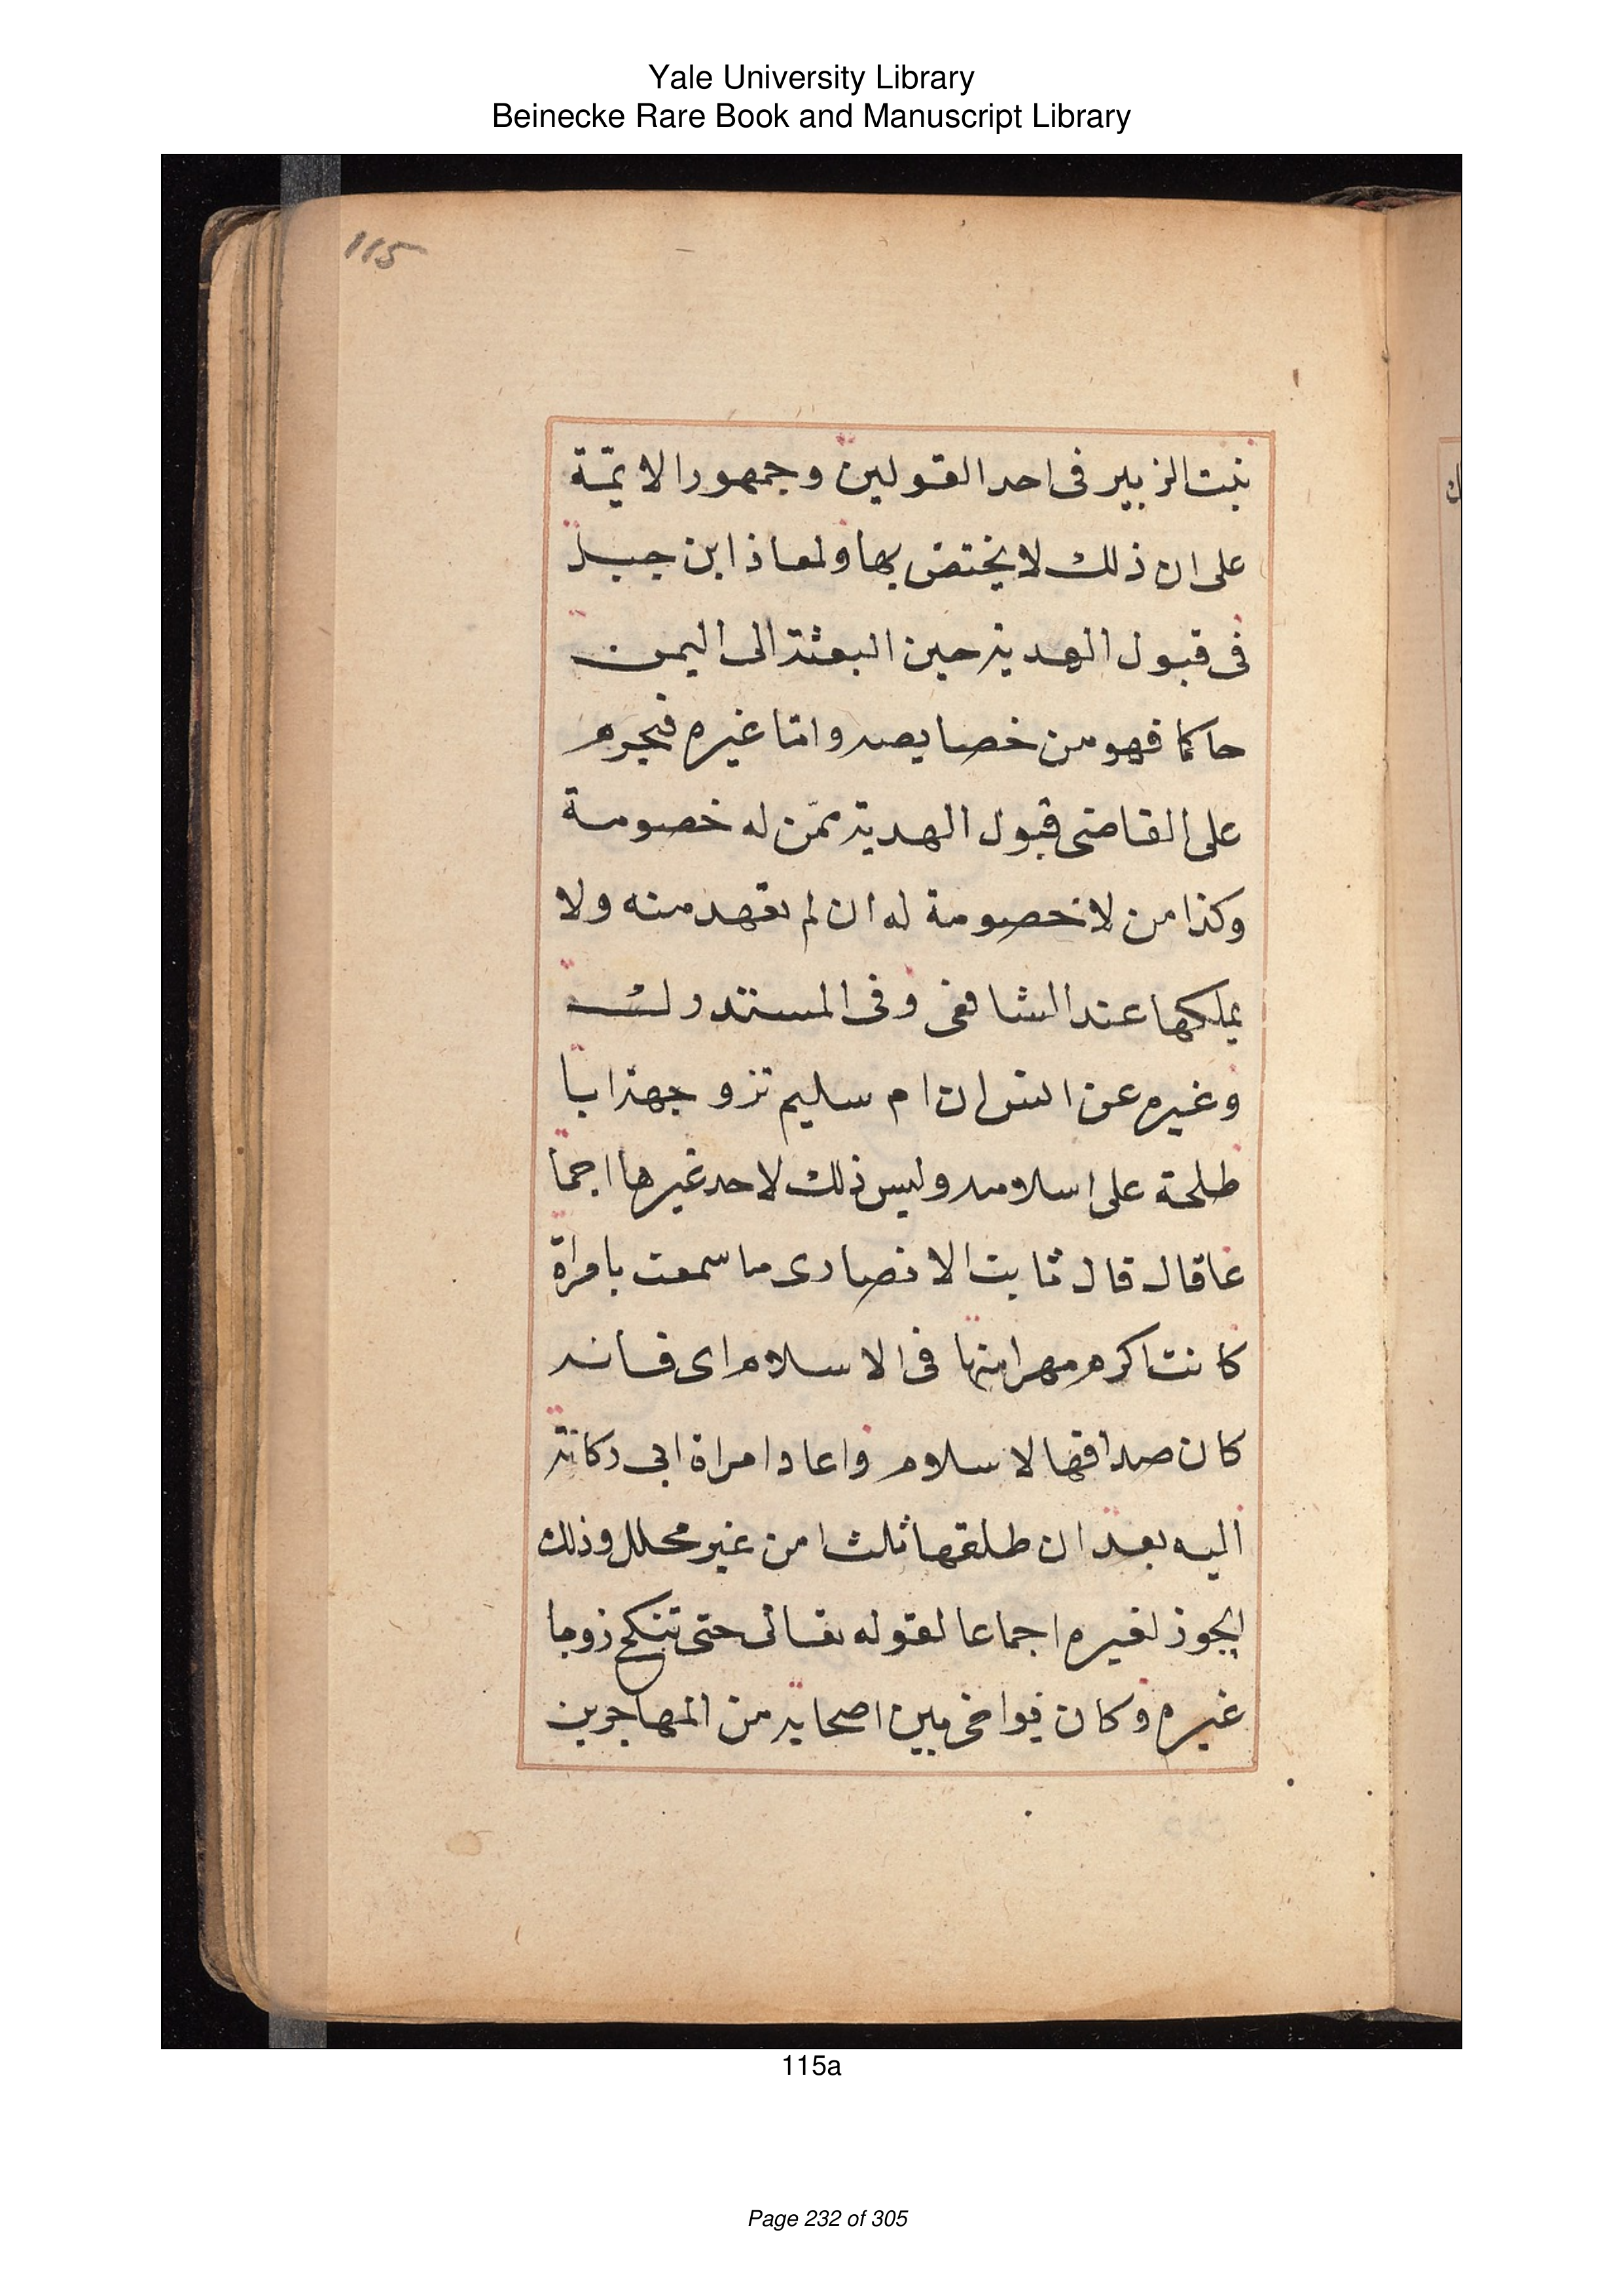 Yale University Library
Beinecke Rare Book and Manuscript Library
115
بنت الزبير فى احد القولين وجمهور الايمّة
على ان ذلك لا يختص بها ولمعاذ ابن جبل
فى قبول الهدية حين البعثة الى اليمن
حاكما فهو من خصايصه وامّا غيره فيحرم
على القاضى قبول الهدية ممّن له خصومة
وكذا من لا خصومة له ان لم يعهد منه ولا
يملكها عند الشافعى وفى المستدرك
وغيره عن انس ان ام سليم تزوجهذ ابا
طلحة على اسلامه وليس ذلك لاحد غيرها اجما
عا قال قال ثابت الانصارى ما سمعت بامراة
كانت اكرم مهرا منها فى الاسلام اى فانه
كان صداقها الاسلام واعاد امراة ابى ركانة
اليه بعد ان طلقها ثلثا من غير محلل وذلك
ايجوز لغيره اجماعا لقوله تعالى حتى تنكح زوجا
غيره وكان يواخى بين اصحابه من المهاجرين
115a
Page 232 of 305